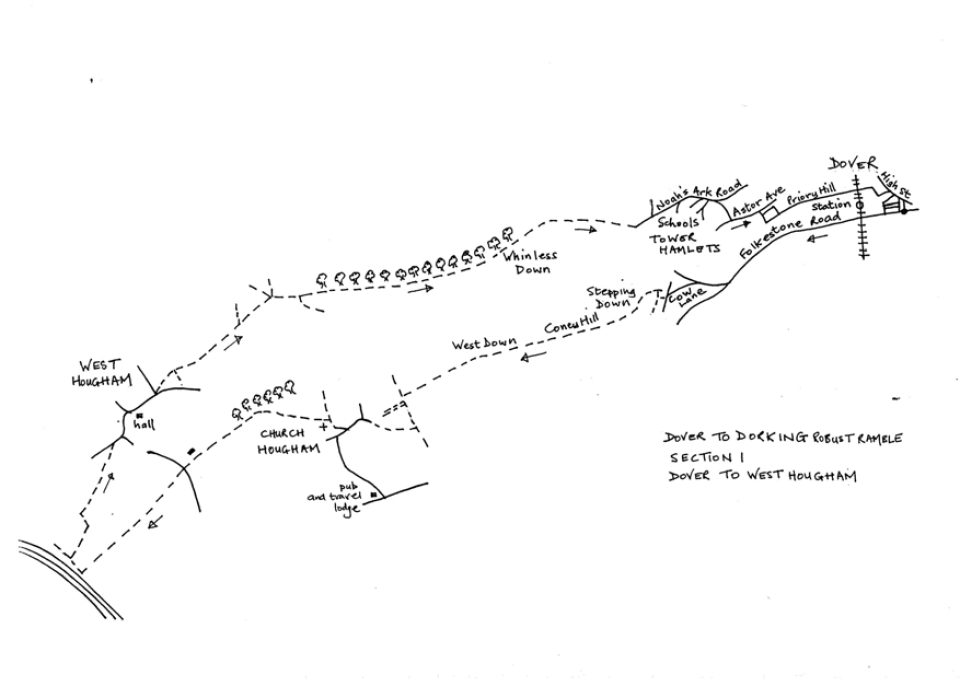 DOVER
High St
Priory Hill
Astor Ave
Noah's Ark Road
Station
Schools
TOWER
HAMLETS
Folkestone Road
Whinless
Down
Stepping
Down
Cow
Lane
Coney Hill
West Down
WEST
HOUGHAM
hall
CHURCH
HOUGHAM
pub
and travel
lodge
DOVER TO DORKING ROBUST RAMBLE
SECTION 1
DOVER TO WEST HOUGHAM